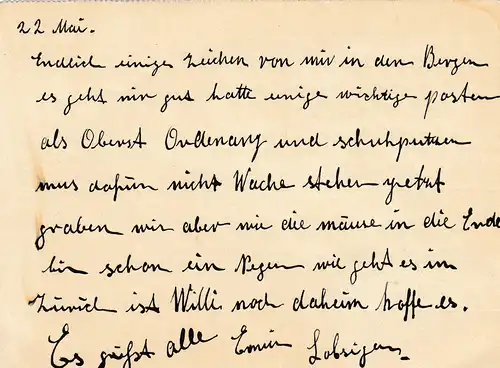 22 Mai.
Endlich einige Zeichen von mir in den Bergen
es geht mir gut hatte einige wichtige posten
als Oberst Ordenanz und schuhputzer
mus dafür nicht Wache stehen jetzt
graben wir aber wie die mäuse in die Erde
bin schon ein Neger wie geht es in
Zürich ist Willi noch daheim hoffe es.
Es grüsst alle Erwin Lobsiger